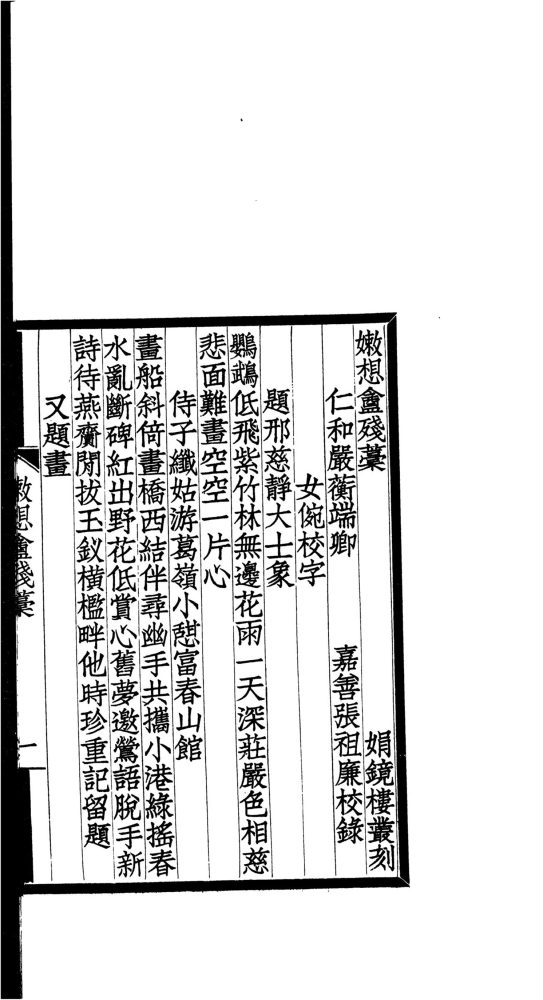 嫩想盦殘藁 娟鏡樓叢刻
仁和嚴蘅端卿 嘉善張祖廉校錄
女俺校字
題邢慈靜大士象
鸚鵡低飛紫竹林無邊花雨一天深莊嚴色相慈
悲面難畫空空一片心
侍子纖姑游葛嶺小憩富春山館
畫船斜倚畫橋西結伴尋幽手共攜小港綠搖春
水亂斷碑紅出野花低賞心舊夢邀鶯語脫手新
詩待燕齎閒拔玉釵橫檻畔他時珍重記留題
又題畫
嫩想盦殘藁 一